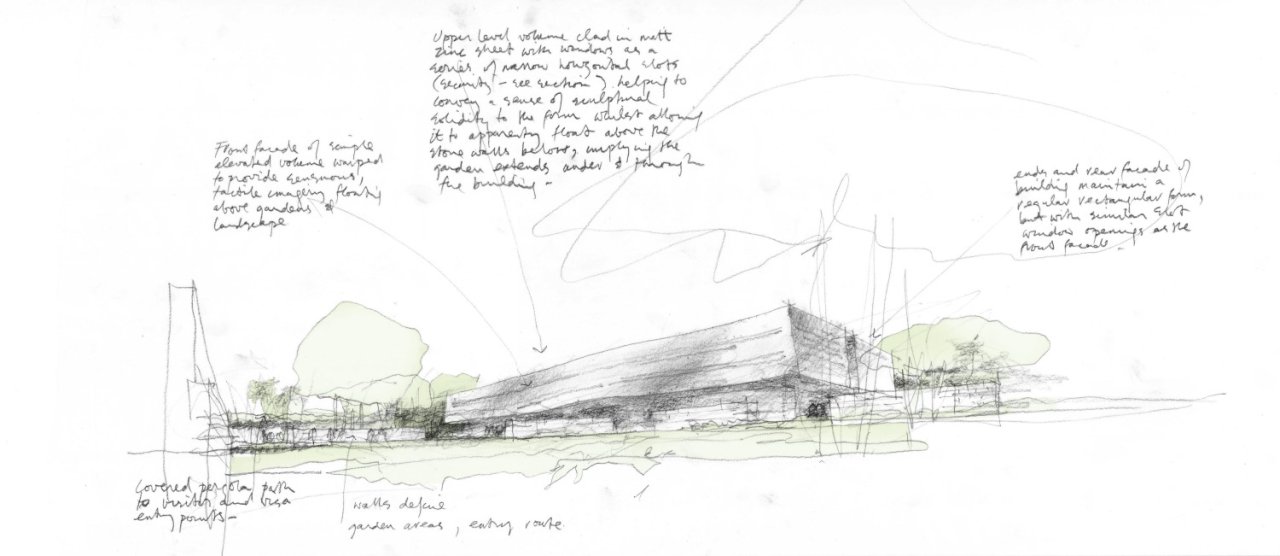 Upper level volume clad in matt
zinc sheet with windows as a
series of narrow horizontal slots
(security - see section) helping to
convey a sense of sculptural
solidity to the form whilst allowing
it to apparently float above the
stone walls below, implying the
garden extends under & through
the building -
Front facade of simple
elevated volume warped
to provide sensuous,
tactile imagery floating
above gardens &
landscape
ends and rear facade of
building maintain a
regular rectangular form,
but with similar slot
window openings as the
front facade -
covered pergola path
to visitor and visa
entry points -
walls define
garden areas, entry route